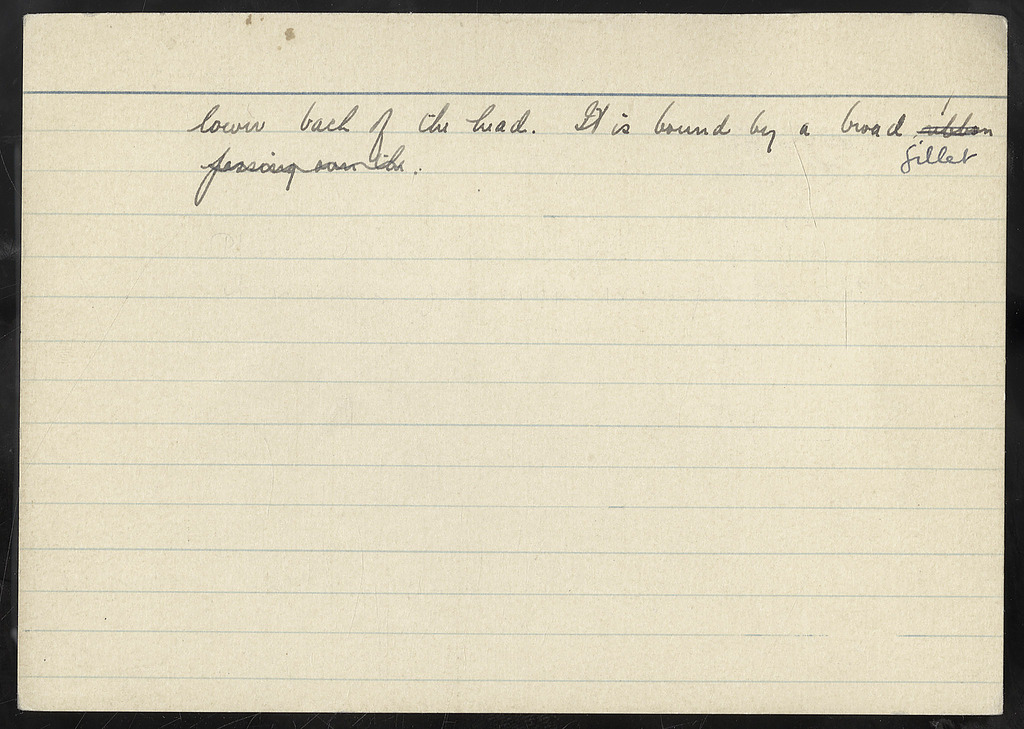 lower back of the head. It is bound by a broad ribbon
fillet
passing over the.